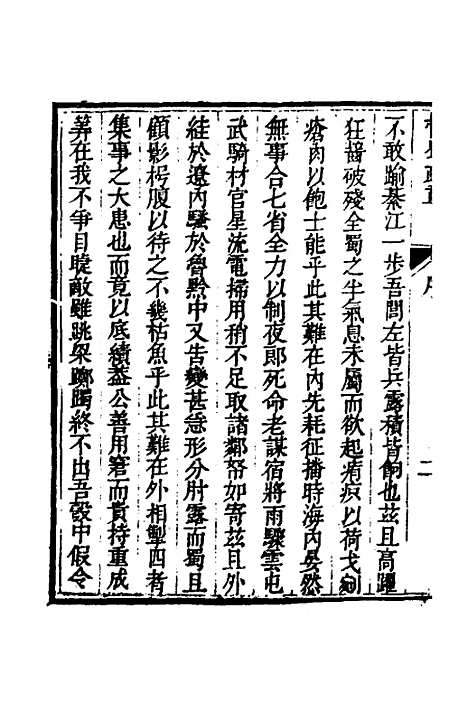 不敢踰綦江一步吾閭左皆兵露積皆餉也茲且高躍
狂噬破殘全蜀之半氣息未屬而欲起瘡痍以荷戈剜
瘡肉以飽士能乎此其難在內先耗征播時海內晏然
無事合七省全力以制夜郎死命老謀宿將雨驟雲屯
武騎材官星流電掃用稍不足取諸鄰帑如寄茲且外
絓於遼內騷於魯黔中又告變甚急形分肘露而蜀且
顧影枵腹以待之不幾枯魚乎此其難在外相掣四者
集事之大患也而竟以底績蓋公善用窘而貴持重成
筭在我不爭目睫敵雖跳梁躑躅終不出吾彀中假令
序
二